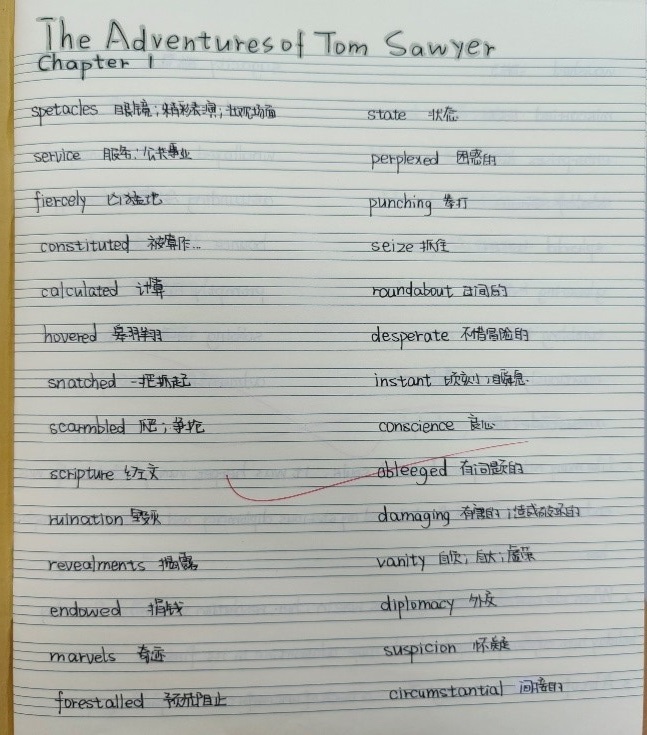 The Adventures of Tom Sawyer
Chapter 1
spetacles 眼镜;精彩表演;壮观场面
service 服务;公共事业
fiercely 凶猛地
constituted 被算作...
calculated 计算
hovered 翱翔
snatched 一把抓起
scarmbled 爬;争抢
scripture 经文
ruination 毁灭
revealments 揭露
endowed 捐钱
marvels 奇迹
forestalled 预先阻止
state 状态
perplexed 困惑的
punching 拳打
seize 抓住
roundabout 迂回的
desperate 不惜冒险的
instant 顷刻;瞬息
conscience 良心
obleeged 有问题的
damaging 有害的;造成破坏的
vanity 自负;自大;虚荣
diplomacy 外交
suspicion 怀疑
circumstantial 间接的